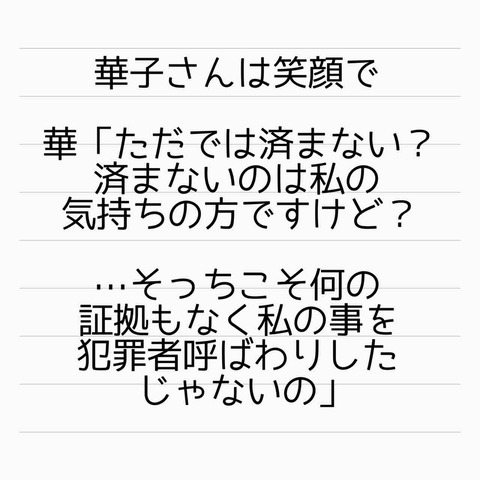 華子さんは笑顔で
華「ただでは済まない？
済まないのは私の
気持ちの方ですけど？
…そっちこそ何の
証拠もなく私の事を
犯罪者呼ばわりした
じゃないの」